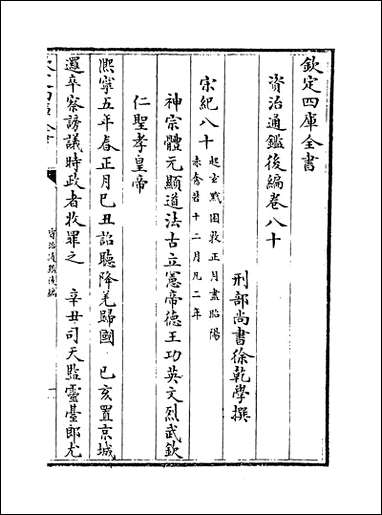 欽定四庫全書
資治通鑑後編卷八十
刑部尚書徐乾學撰
宋紀八十 起玄黓困敦正月盡昭陽
赤奮若十二月凡二年
神宗體元顯道法古立憲帝德王功英文烈武欽
仁聖孝皇帝
熙寧五年春正月己丑詔聽降羌歸國 己亥置京城
邏卒察謗議時政者收罪之 辛丑司天監靈臺郎尤
資治通鑑後編
一